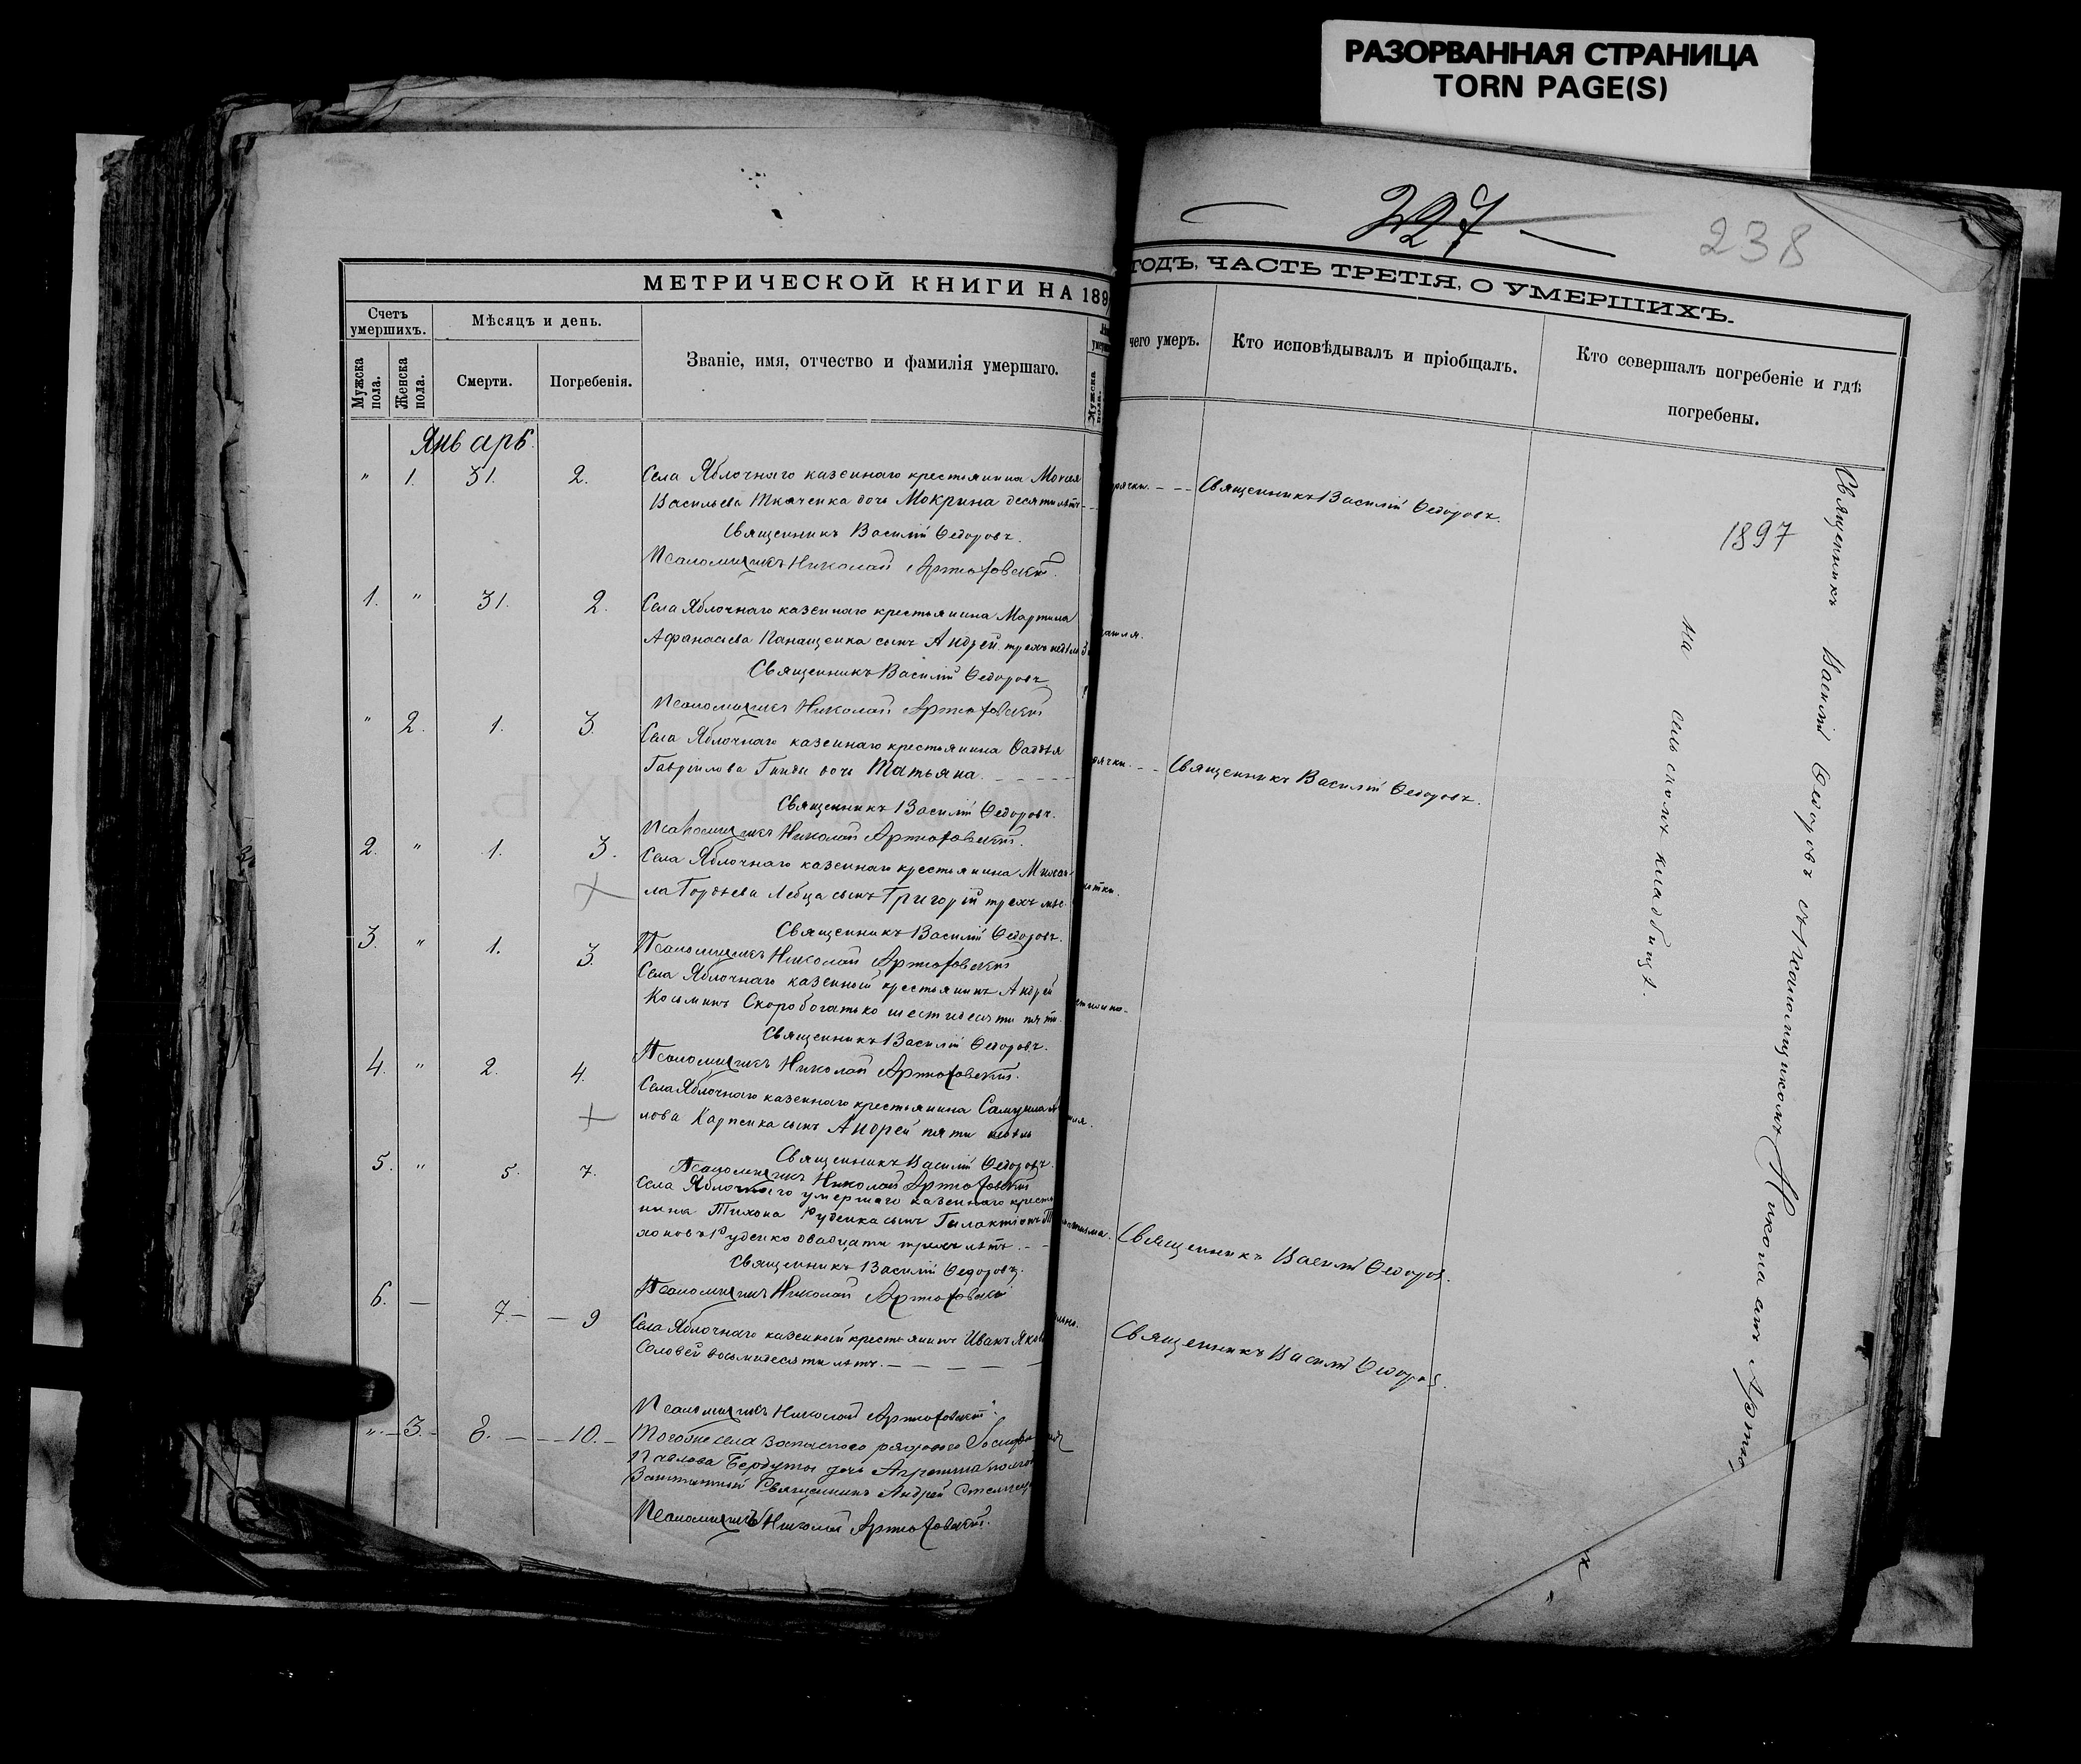 РАЗОРВАННАЯ СТРАНИЦА
TORN PAGE(S)
227
238
МЕТРИЧЕСКОЙ КНИГИ НА 189
ГОДЪ, ЧАСТЬ ТРЕТІЯ, О УМЕРШИХЪ.
Счетъ умершихъ.
Мѣсяцъ и день.
Мужска пола.
Женска пола.
Смерти.
Погребенія.
Званіе, имя, отчество и фамилія умершаго.
Мужска пола.
чего умеръ.
Кто исповѣдывалъ и пріобщалъ.
Кто совершалъ погребеніе и гдѣ
погребены.
Январь.
" 1. 31. 2. Села Яблочнаго казеннаго крестьянина Моисея
Васильева Ткаченка дочь Мокрина десяти лѣтъ
Священникъ Василій Ѳедоровъ.
Псаломщикъ Николай Артюховскій.
рячки. Священникъ Василій Ѳедоровъ.
1. " 31. 2. Села Яблочнаго казеннаго крестьянина Мартина
Афанасіева Панащенка сынъ Андрей трехъ недѣль
Священникъ Василій Ѳедоровъ
Псаломщикъ Николай Артюховскій
" 2. 1. 3. Села Яблочнаго казеннаго крестьянина Фаддѣя
Гавріилова Гниды дочь Татьяна.
Священникъ Василій Ѳедоровъ.
Псаломщикъ Николай Артюховскій.
рячки. Священникъ Василій Ѳедоровъ.
2. " 1. 3. Села Яблочнаго казеннаго крестьянина Михаи-
ла Гордѣева Лебца сынъ Григорій трехъ мѣс.
Священникъ Василій Ѳедоровъ.
Псаломщикъ Николай Артюховскій
3. " 1. 3. Села Яблочнаго казенный крестьянинъ Андрей
Косьминъ Скоробогатько шестидесяти пяти
Священникъ Василій Ѳедоровъ.
Псаломщикъ Николай Артюховскій.
4. " 2. 4. Села Яблочнаго казеннаго крестьянина Самуила
лова Карпенка сынъ Андрей пяти недѣль
Священникъ Василій Ѳедоровъ.
Псаломщикъ Николай Артюховскій
5. " 5. 7. Села Яблочнаго умершаго казеннаго кресть
нина Тихона Руденка сынъ Галактіонъ
хоновъ Руденко двадцати трехъ лѣтъ.
Священникъ Василій Ѳедоровъ.
Псаломщикъ Николай Артюховскій
Священникъ Василій Ѳедоровъ.
6. — 7. — 9 Села Яблочнаго казенный крестьянинъ Иванъ
Соловей восьмидесяти лѣтъ.
Псаломщикъ Николай Артюховскій.
Священникъ Василій Ѳедоровъ.
" 3. 8. 10. Тогоже села запаснаго рядоваго
Павлова Бердуты дочь
Заштатный Священникъ Андрей
Псаломщикъ Николай Артюховскій.
1897
Священникъ Василій Ѳедоровъ съ псаломщикомъ Николаемъ
на сельскомъ кладбищѣ.